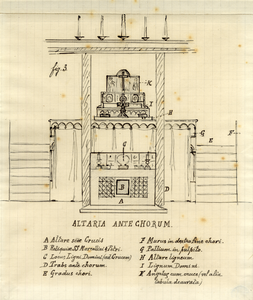 fig. 3
K
I
H
G
F
E
C
B
A
D
ALTARIA ANTE CHORUM.
A Altare sive Crucis
B Reliquiae SS. Marcellini & Petri.
C Locus Ligni Domini (sed Crucem)
D Trabs ante chorum.
E Gradus chori.
F Murus in dextra
G Pallium in
H Altare ligneum.
I Lignum Domini.
K Angelus cum cruce (vel alia
tabula deaurata)